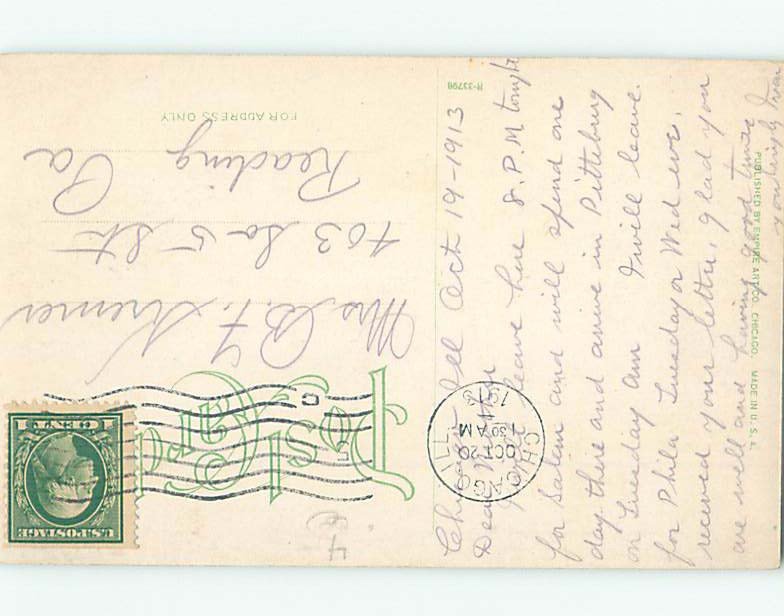 Chicago Ill Oct 19-1913
Dear Mother
leave here 8.P.M tonight
for Salem and will spend one
day there and arrive in Pittsburg
on Tuesday am I will leave
for Phila Tuesday or Wed eve.
received your letter, glad you
are well and having good times
Post Card
FOR ADDRESS ONLY
Mrs B. F. Kremer
403 So 5 Str
Reading
Pa
CHICAGO, ILL.
OCT 20
1 30 AM
1913
U.S. POSTAGE
1 CENT 1
H-33798
PUBLISHED BY EMPIRE ART CO. CHICAGO. MADE IN U. S. A.